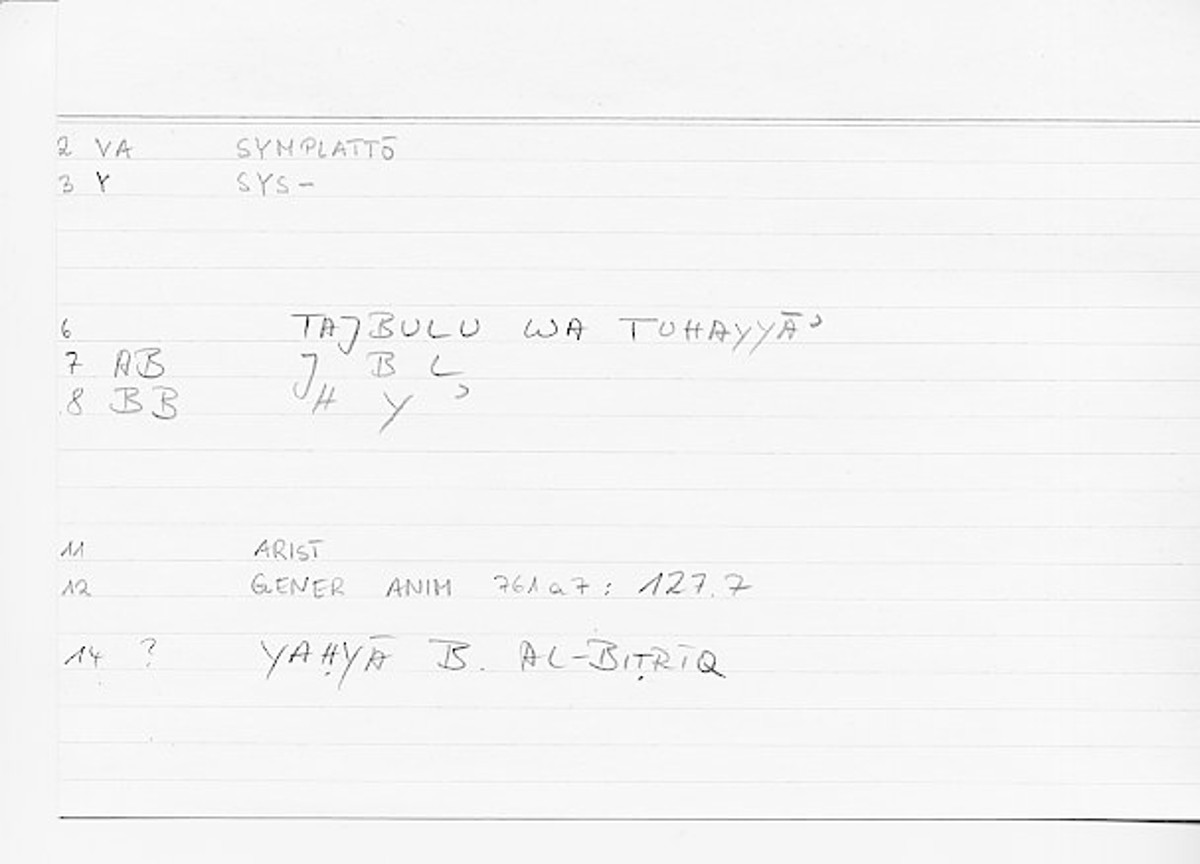 2 VA SYMPLATTŌ
3 Y SYS-
6 TAJBULU WA TUHAYYĀʾ
7 AB J B L
8 BB H Y ʾ
11 ARIST
12 GENER ANIM 761a7: 127.7
14 ? YAḤYĀ B. AL-BIṬRĪQ